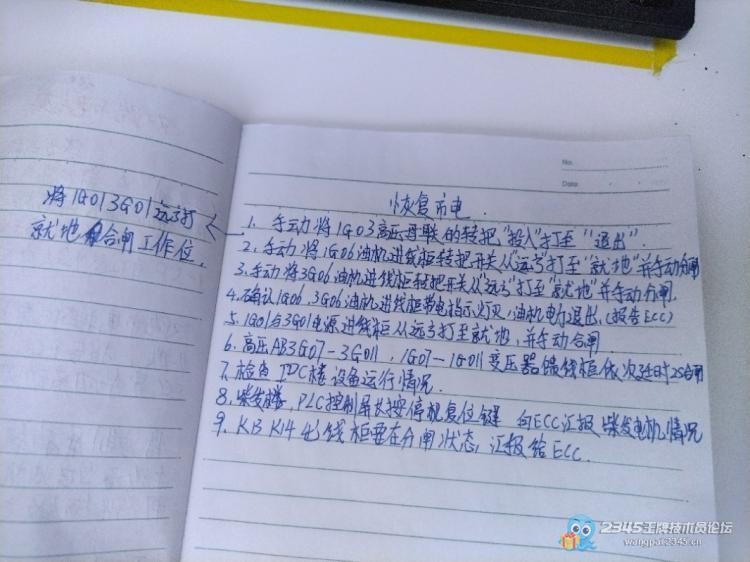 将1G01 3G01远方打
就地 合闸工作位.
No.
Date.
恢复市电.
1. 手动将1G03高压母联的转把"投入"打至"退出".
2. 手动将1G06油机进线柜转把开关从"远方"打至"就地"并手动分闸
3. 手动将3G06油机进线柜转把开关从"远方"打至"就地"并手动分闸.
4. 确认1G06, 3G06油机进线柜带电指示灯灭, 油机电退出. (报告ECC)
5. 1G01与3G01电源进线柜从远方打至就地, 并手动合闸
6. 高压AB3G07-3G011, 1G07-1G011变压器馈线柜依次延时25合闸
7. 检查IDC楼设备运行情况.
8. 柴发楼, PLC控制屏长按停机复位键 向ECC汇报 柴发电机情况
9. KB K14 出线柜要在分闸状态, 汇报给ECC.
2345王牌技术员论坛
wangpai.2345.cn